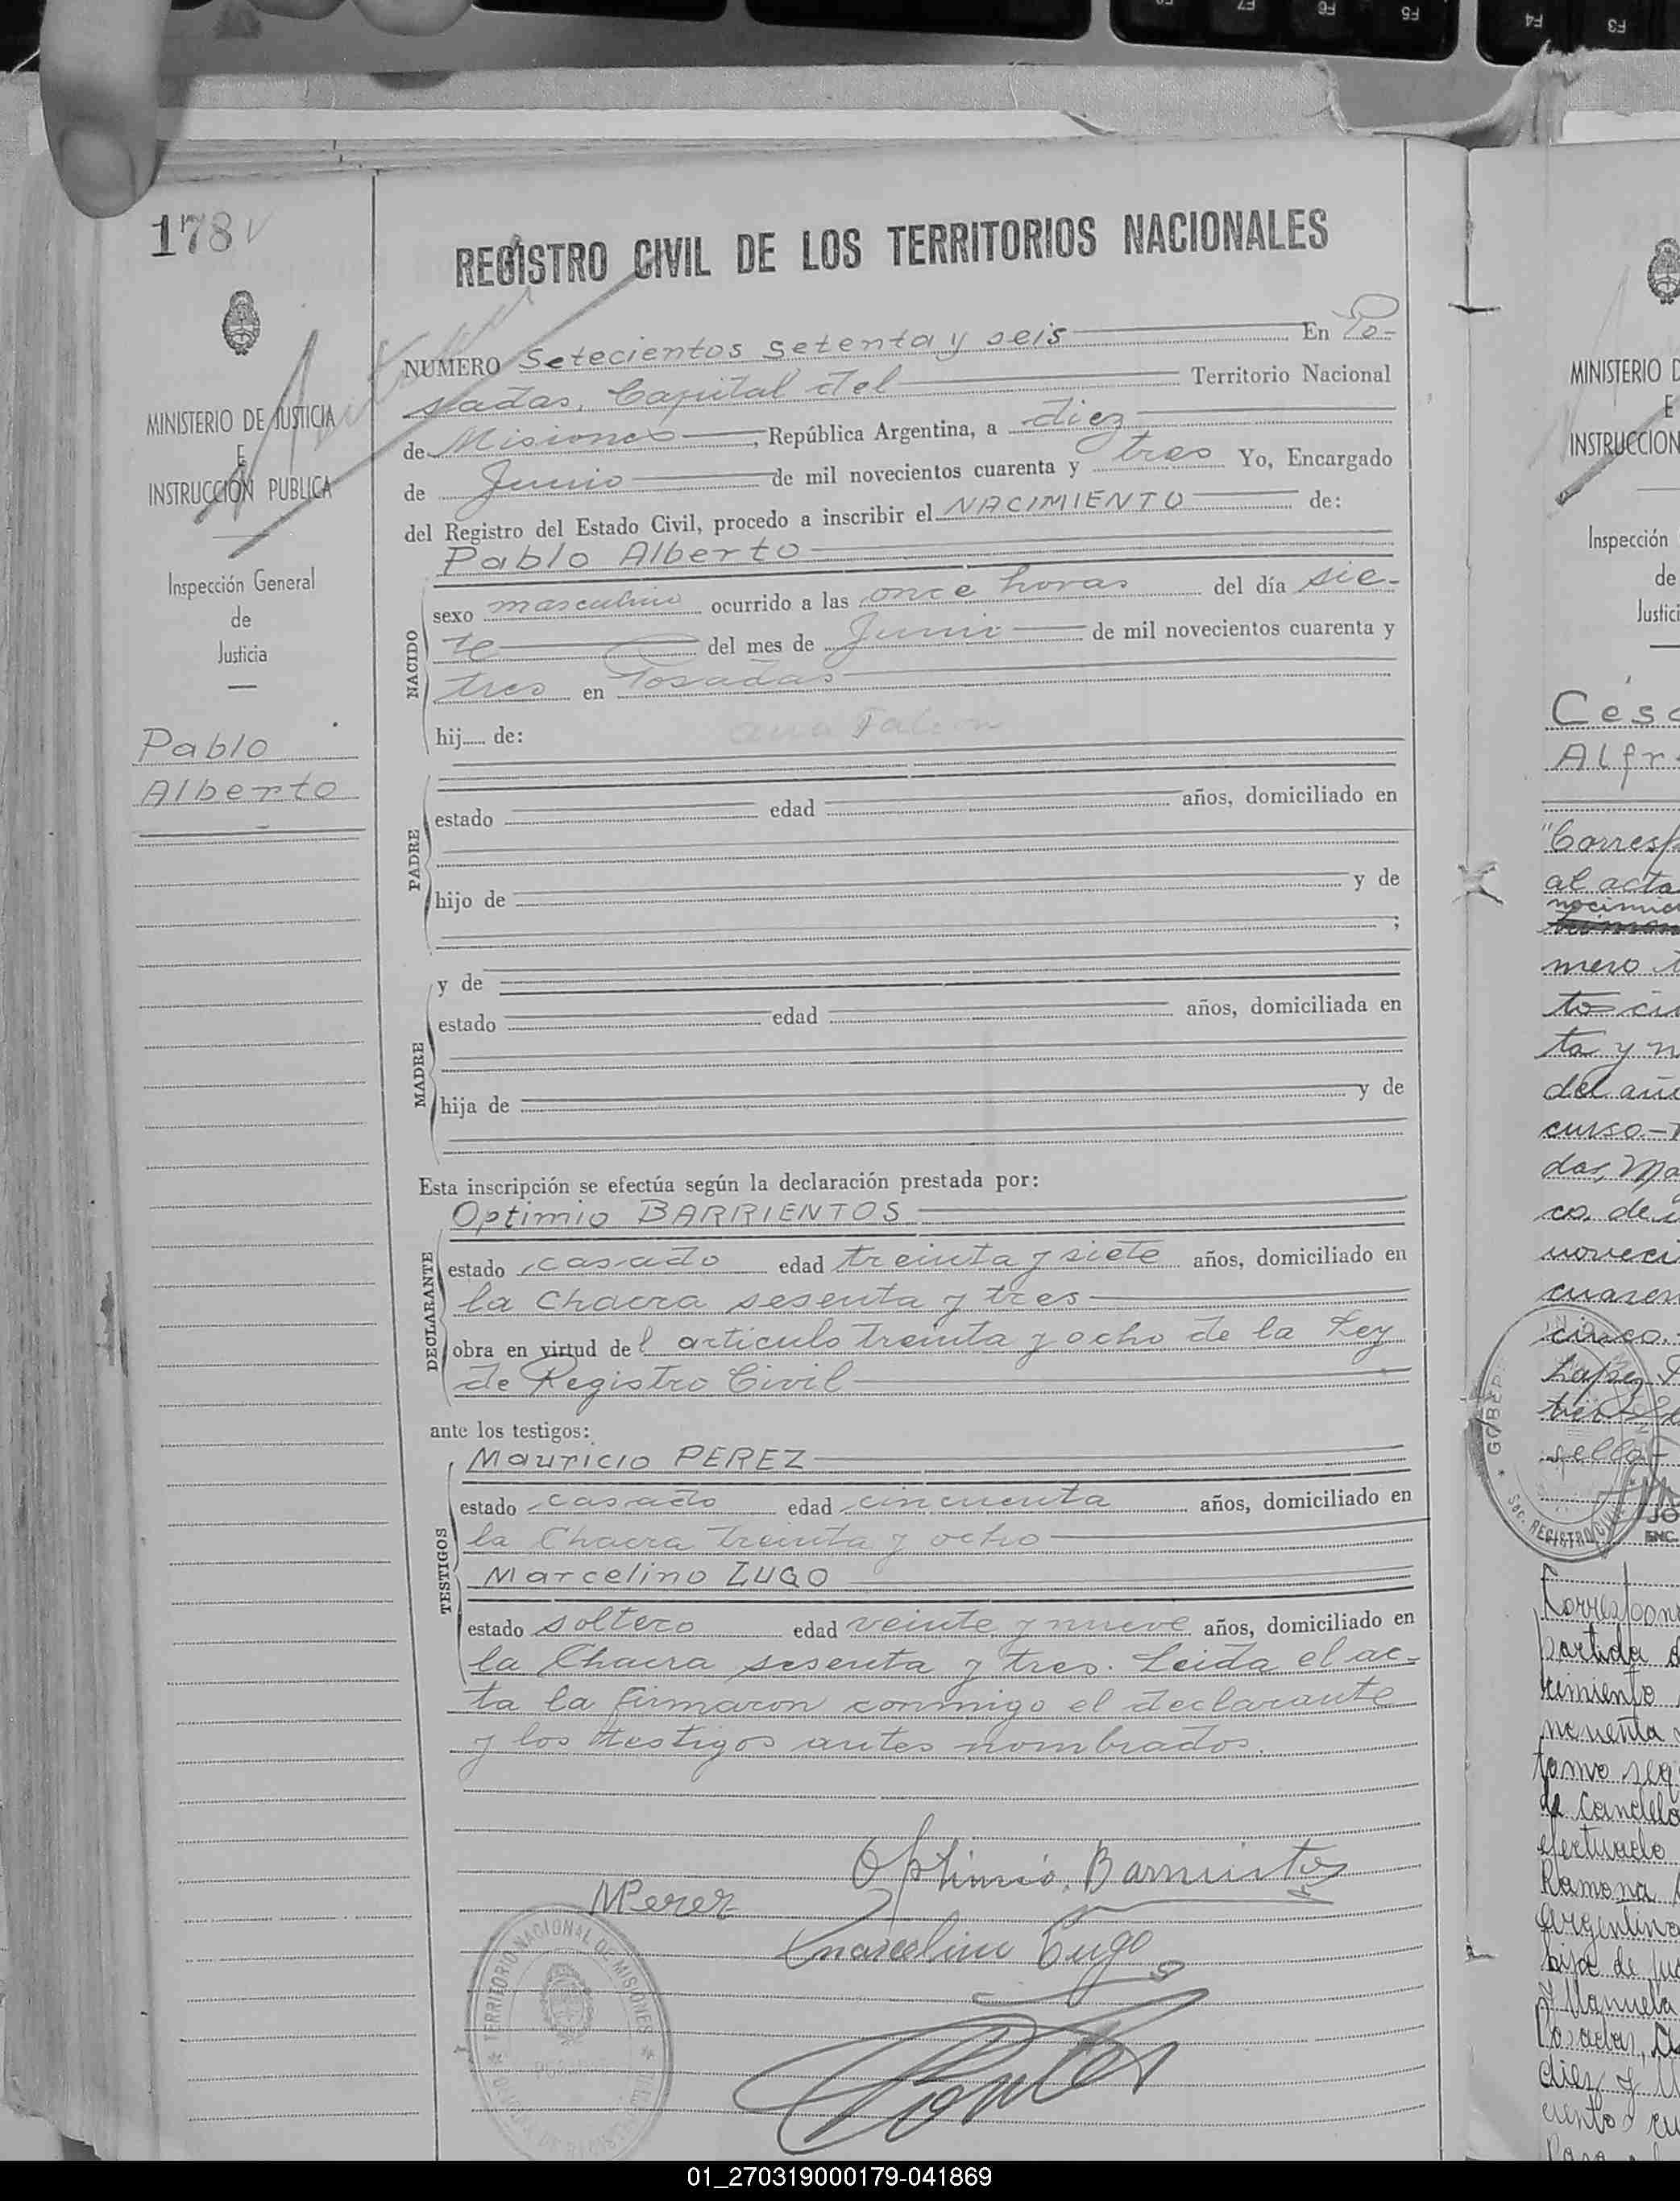 F7 F6 F5 F4 F3
178
REGISTRO CIVIL DE LOS TERRITORIOS NACIONALES
MINISTERIO DE JUSTICIA
E
INSTRUCCIÓN PUBLICA
Inspección General
de
Justicia
Pablo
Alberto
NUMERO Setecientos setenta y seis En Po-
sadas, Capital del Territorio Nacional
de Misiones, República Argentina, a diez
de Junio de mil novecientos cuarenta y tres Yo, Encargado
del Registro del Estado Civil, procedo a inscribir el NACIMIENTO de:
Pablo Alberto
NACIDO
sexo masculino ocurrido a las once horas del día sie-
te del mes de Junio de mil novecientos cuarenta y
tres en Posadas
hij de:
PADRE
estado edad años, domiciliado en
hijo de y de
;
MADRE
y de
estado edad años, domiciliada en
hija de y de
Esta inscripción se efectúa según la declaración prestada por:
Optimio BARRIENTOS
DECLARANTE
estado casado edad treinta y siete años, domiciliado en
la Chacra sesenta y tres
obra en virtud del articulo treinta y ocho de la Ley
de Registro Civil
ante los testigos:
Mauricio PEREZ
TESTIGOS
estado casado edad cincuenta años, domiciliado en
la Chacra treinta y ocho
Marcelino LUGO
estado soltero edad veinte y nueve años, domiciliado en
la Chacra sesenta y tres. Leida el ac-
ta la firmaron conmigo el declarante
y los testigos antes nombrados.
Optimio Barrientos
MPerez
Marcelino Lugo
TERRITORIO NACIONAL DE MISIONES
MINISTERIO D
E
INSTRUCCION
Inspección
de
Justici
Césa
Alfr
"Corresp
al acta
mero
ta y n
del añ
curso.-
das, Ma
co. de
noveci
cuaren
cinco.-
GOBER
Sec. REGISTRO CIVIL
JO
ENC.
Correspon
partida d
cimiento
Ramona
Argentina
hija de
y Manuela
Posadas,
diez y
01_270319000179-041869